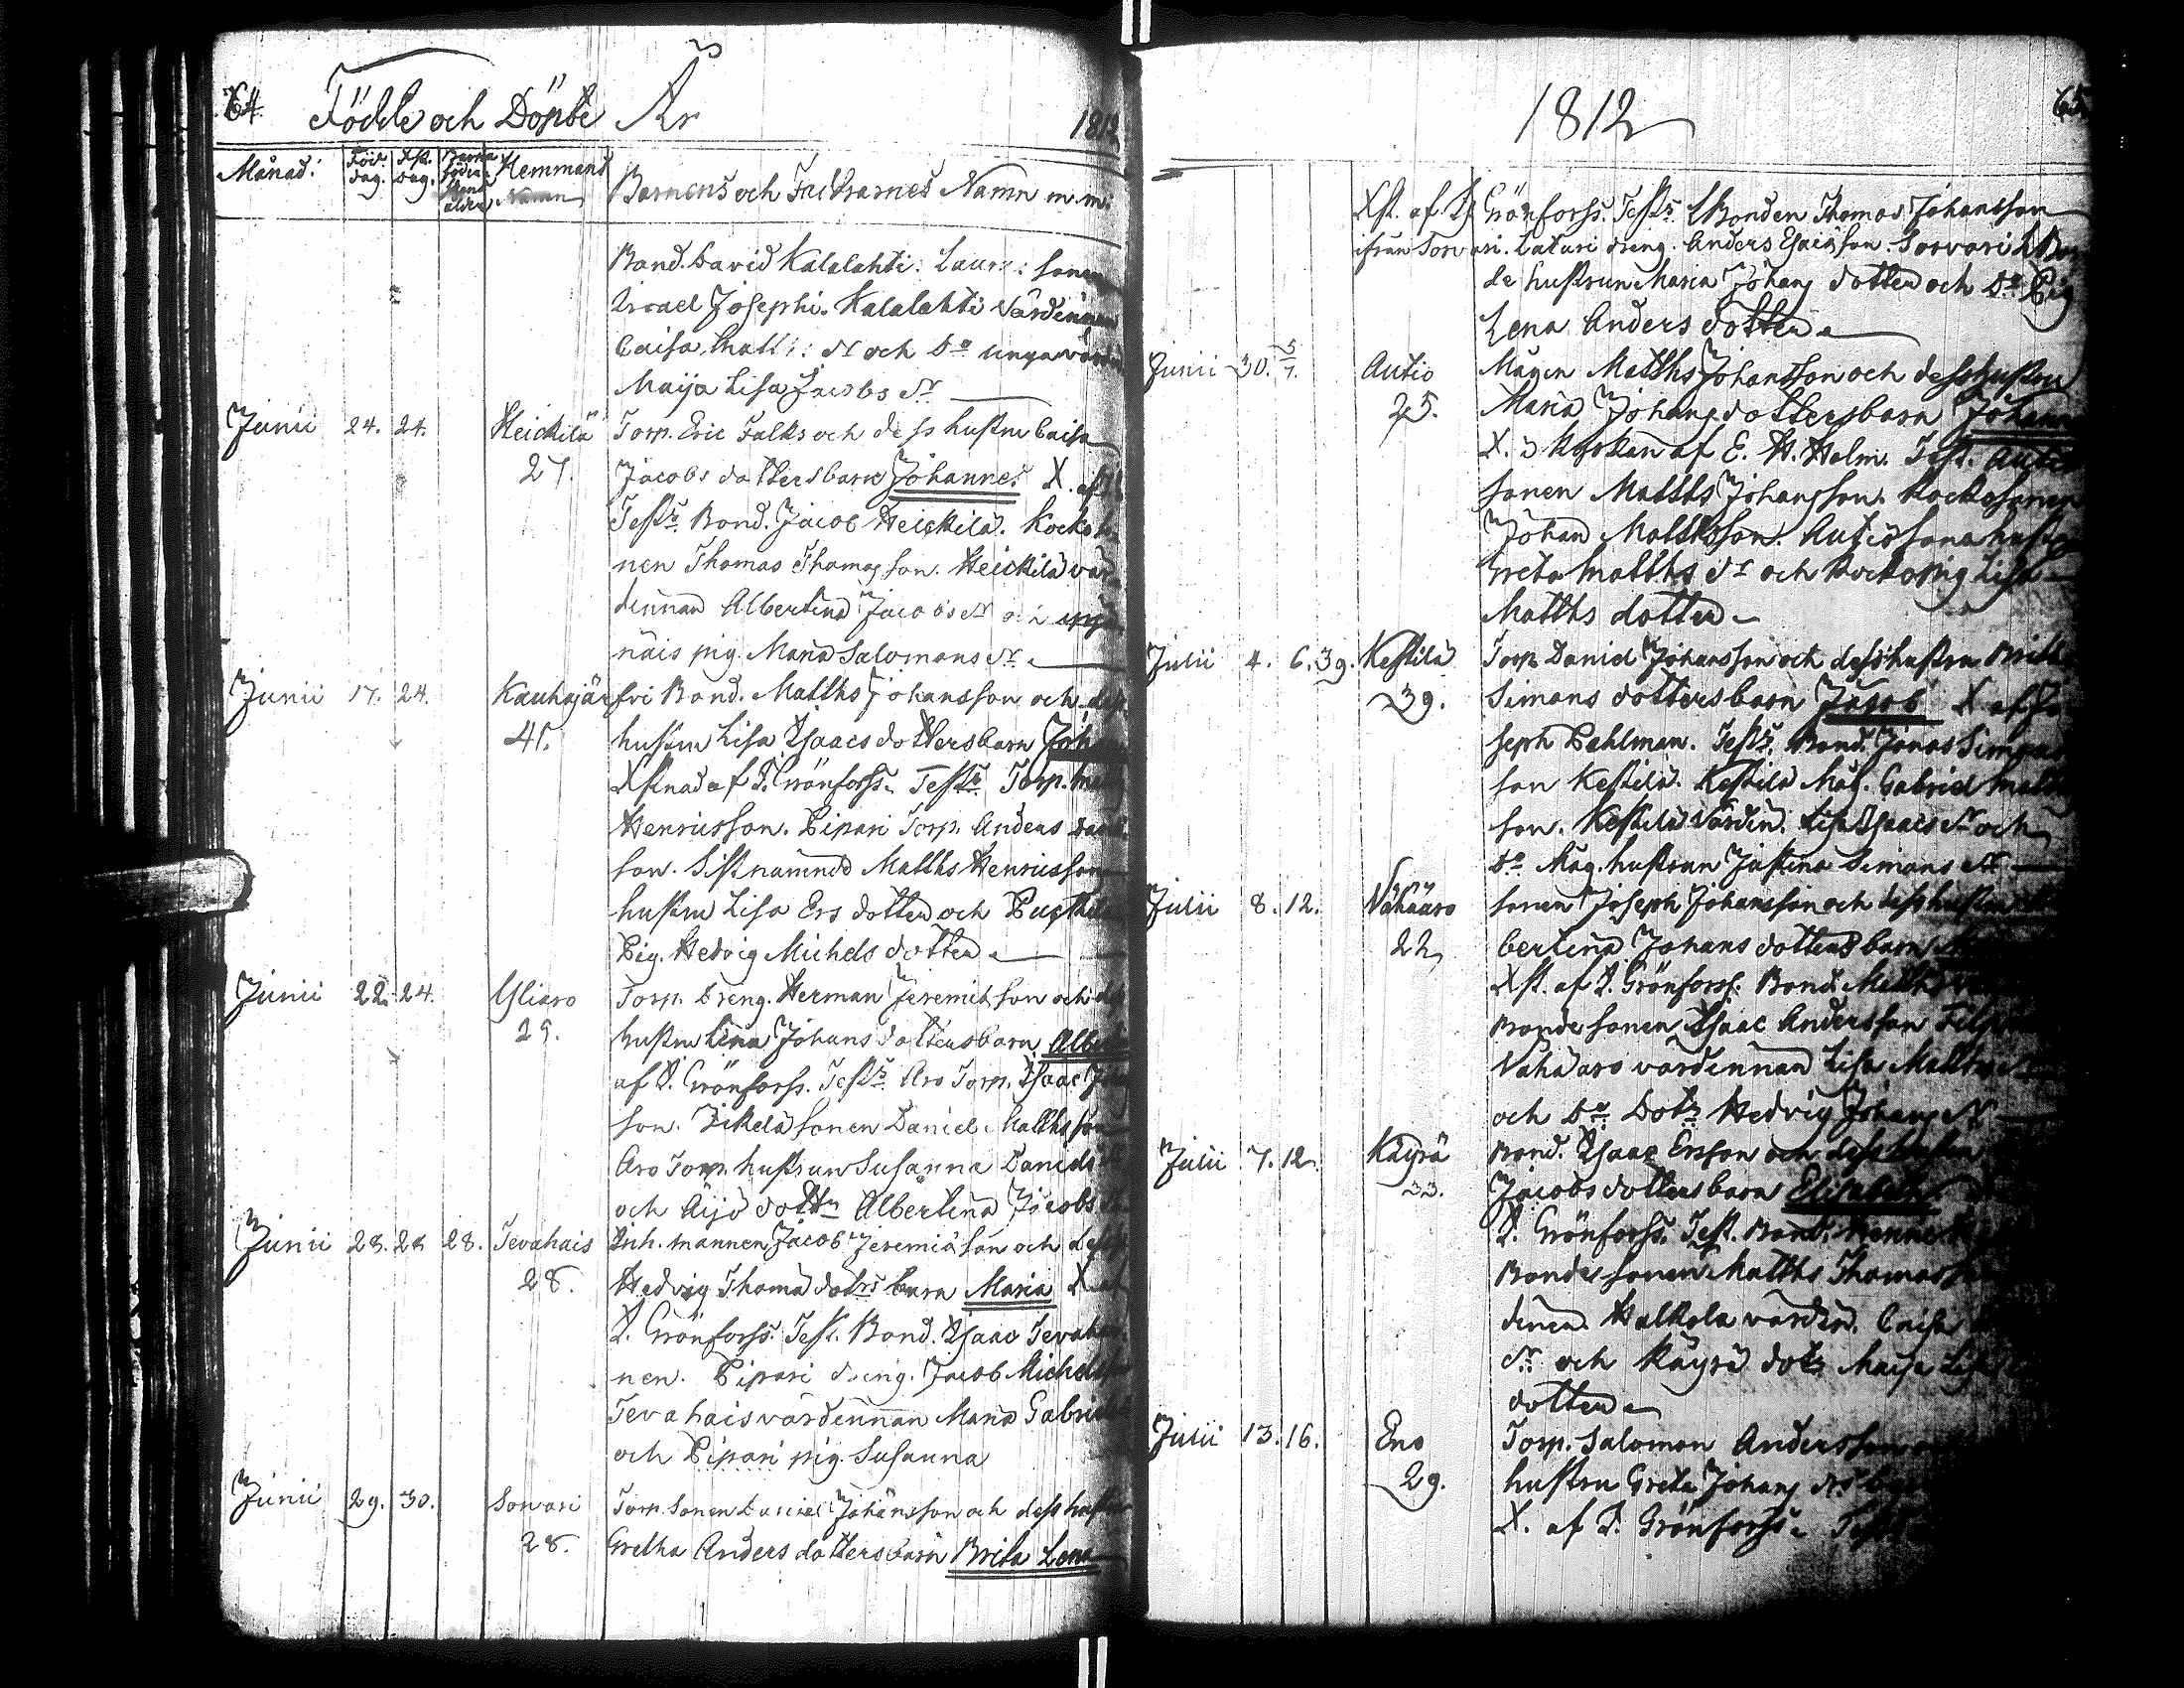 64. Födde och Döpte År 1812
Månad: Föd. dag. Xst. dag. Barna föder- skans ålder Hemmans Namn Barnens och Faddrarnes Namn m.m.
Bond. David Kalalahti. Laur: sonen
Israel Josephi. Kalalahti värdinnan
Caisa Matts: dr och Do unga värdin
Maija Lisa Jacobs dr
Junii 24. 24. Heickilä Torp. Eric Falks och dess hustru Caisa
27. Jacobs dottersbarn Johannes X. af
Testr. Bond. Jacob Heickilä. Kocko
nen Thomas Thomasson. Heickilä vär
dinnan Albertina Jacobs dr
näis pig. Maria Salomons dr
Junii 17. 24. Kauhajär fvi Bond. Matths Johansson och dess
41. hustru Lisa Isaacs dottersbarn Joh
Xstnad af I. Grönforss. Testr. Torp. Matt
Henricsson. Pipari Torp. Anders
son. Sistnämnde Matths Henricsson
hustru Lisa Ers dotter och
Pig. Hedvig Michels dotter
Junii 22. 24. Yliaro Torp. Dreng. Herman Jeremiæ son och
29. hustru Lena Johans dottersbarn Albe
af I. Grönforss. Testr. Aro Torp. Isaac
son. Sonen Daniel Matthsson
Aro Torp. hustrun Susanna Daniels
och Äijö dottr Albertina Jacobs
Junii 28. 28 28. Tevahais Inh. mannen Jacob Jeremiæ son och dess
28. Hedvig Thomæ dotrs barn Maria X af
I. Grönforss. Test. Bond. Isaac Tevaha
nen. Pipari dreng. Jacob Michels
Tevahais värdinnan Maria Gabriels
och Pipari pig. Susanna
Junii 29. 30. Sorvari Torp. Sonen Daniel Johansson och dess hustru
28. Gretha Anders dottersbarn Brita Lena
1812 65
Xst. af I. Grönforss. Testr. Bonden Thomas Johansson
ifrån Sorvari. Laturi dreng. Anders Esaiæson. Sorvari
de hustrun Maria Johans dotter och Do Pig
Lena Anders dotter
Junii 30. 5/7. Autio Mågen Matths Johansson och dess hustru
25. Maria Johans dottersbarn Johann
X. i kyrkan af E. H. Holm. Test. Autio
Sonen Matths Johansson. Kockosonen
Johan Matthsson. Autio Sona hustr
Greta Matths dr och Kocko pig Lisa
Matths dotter
Julii 4. 6. 39. Kestilä Torp. Daniel Johansson och dess hustru Brita
39. Simons dottersbarn Jacob X af Jo
seph Pahlman. Testr. Bond. Jonas
son Kestilä. Kestilä Måg. Gabriel Matts
son. Kestilä Värdin. Lisa Isaacs dr och
Do Måg. hustrun Justina Simons dr
Julii 8. 12. Vähäaro Sonen Joseph Johansson och dess hustru
22 bertina Johans dotters barn
Xst. af I. Grönforss. Bond. Matths
Bonde sonen Isaac Andersson
Vähäaro värdinnan Lisa Matths
och Do Dotr Hedvig Johans dr
Julii 7. 12. Käyrä Bond. Isaac Ersson och dess hustru
33. Jacobs dotters barn Elisabeth
I. Grönforss. Test. Bond.
Bonde sonen Matths Thomasson
dinen. Halkola värdin. Caisa
dr och Käyrä dotr Maija Lisa
dotter
Julii 13. 16. Eno Torp. Salomon Andersson
29. hustru Greta Johans drs
X. af I. Grönforss. Test